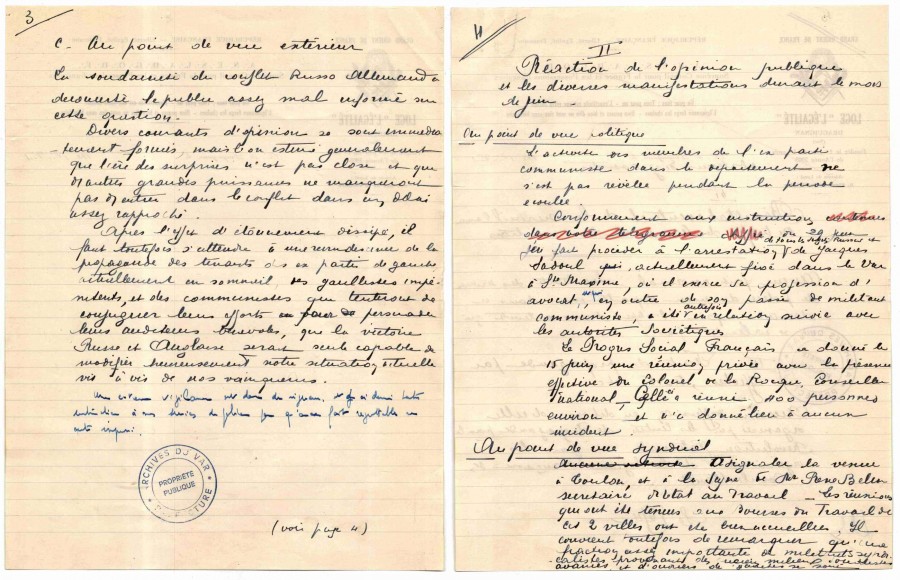 3
C. Au point de vue extérieur
La soudaineté du conflit Russo Allemand a
découvert le public assez mal informé sur
cette question.
Divers courants d'opinion se sont immédia
tement formés, mais l'on estime généralement
que l'ère des surprises n'est pas close et que
d'autres grandes puissances ne manqueront
pas d'entrer dans le conflit dans un délai
assez rapproché.
Après l'effet d'étonnement dissipé, il
faut toutefois s'attendre à une recrudescence de la
propagande des tenants des ex partis de gauche
actuellement en sommeil, des gaullistes impé-
nitents, et des communistes qui tenteront de
conjuguer leurs efforts pour persuader
leurs auditeurs bénévoles, que la victoire
Russe et Anglaise serait seule capable de
modifier heureusement notre situation actuelle
vis à vis de nos vainqueurs.
vigilance
ARCHIVES DU VAR
PROPRIÉTÉ
PUBLIQUE
PRÉFECTURE
(voir page 4)
4
II
Réaction de l'opinion publique
et les diverses manifestations durant le mois
de juin -
Au point de vue politique
L'activité des membres de l'ex parti
communiste dans le département ne
s'est pas révélée pendant la période
écoulée
Conformément aux instructions
dans votre télégramme
de tous les sujets Russes et
j'ai fait procéder à l'arrestation de Jacques
Sadoul qui, actuellement fixé dans le Var
à Ste Maxime, où il exerce sa profession d'
avocat, en outre de son passé de militant
communiste, a été autrefois en relation suivie avec
les autorités Soviétiques
Le Progrès Social Français a donné le
15 juin, une réunion privée avec la présence
effective du Colonel de la Rocque, Conseiller
national - Celle a réuni 400 personnes
environ et n'a donné lieu à aucun
incident.
Au point de vue syndical
Aucune activité A signaler la venue
à Toulon, et à la Seyne de Mr René Belin
secrétaire d'Etat au Travail - Les réunions
qui ont été tenues aux Bourses du Travail de
ces 2 villes ont été bien accueillies. Il
convient toutefois de remarquer qu'une
fraction assez importante de militants syndi-
calistes provenant des milieux
avancés et d'ouvriers de